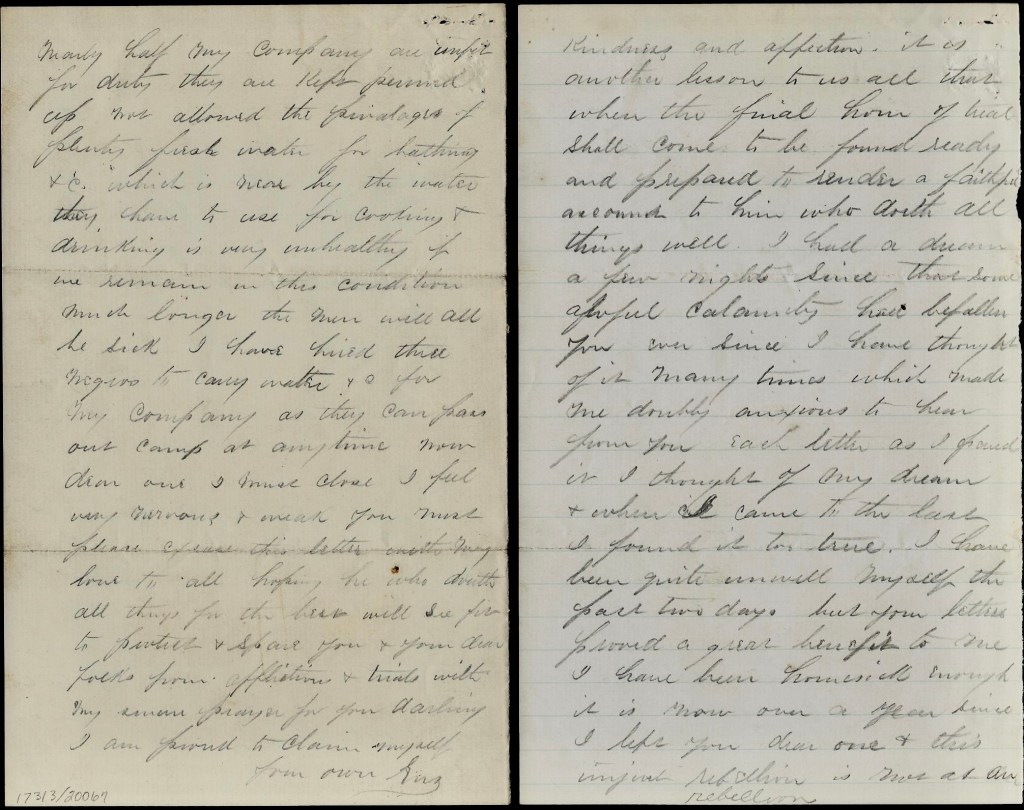 nearly half my company are unfit
for duty they are kept penned
up not allowed the privalages of
plenty fresh water for bathing
&c. which is near by the water
they have to use for cooking &
drinking is very unhealthy if
we remain in this condition
much longer the men will all
be sick I have hired three
negros to carry water &c for
my company as they can pass
out camp at anytime now
dear one I must close I feel
very nervous & weak you must
please excuse this letter with my
love to all hoping he who doeth
all things for the best will see fit
to protect & spare you & your dear
folks from affliction & trials with
my sincere prayer for you darling
I am proud to claim myself
your own
17313/20067
kindness and affection. it is
another lesson to us all that
when the final hour of trial
shall come to be found ready
and prepared to render a faithful
account to him who doeth all
things well. I had a dream
a few nights since that some
awful calamity had befallen
you ever since I have thought
of it many times which made
me doubly anxious to hear
from you each letter as I
it I thought of my dream
& when I came to the last
I found it too true. I have
been quite unwell myself the
past two days but your letters
proved a great benefit to me
I have been homesick enough
it is now over a year since
I left you dear one & this
unjust rebellion is not at an
rebellion